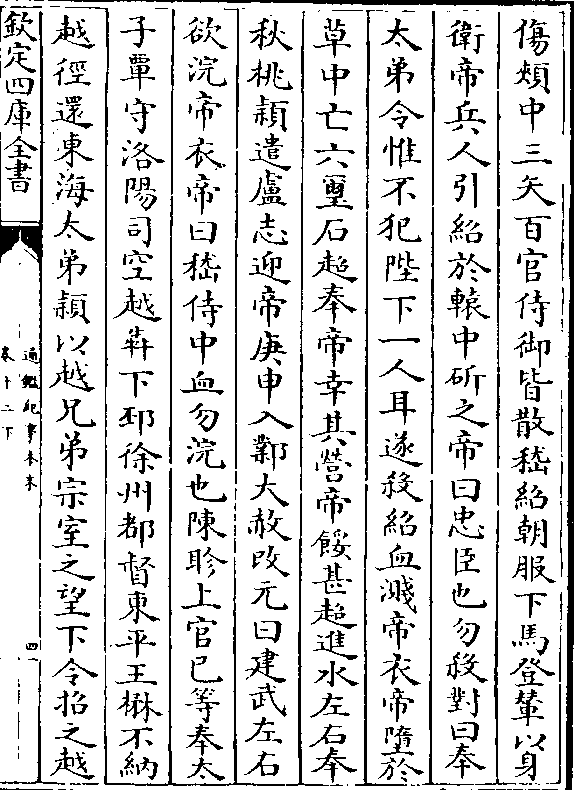 傷頰中三矢百官侍御皆散嵇紹朝服下馬登輦以身
衛帝兵人引紹於轅中斫之帝曰忠臣也勿殺對曰奉
太弟令惟不犯陛下一人耳遂殺紹血濺帝衣帝墮於
草中亡六璽石超奉帝幸其營帝餒甚超進水左右奉
秋桃穎遣盧志迎帝庚申入鄴大赦改元曰建武左右
欲浣帝衣帝曰嵇侍中血勿浣也陳眕上官巳等奉太
子覃守洛陽司空越犇下邳徐州都督東平王楙不納
越徑還東海太弟穎以越兄弟宗室之望下令招之越
欽定四庫全書
通鑑紀事本末
卷十二下
四